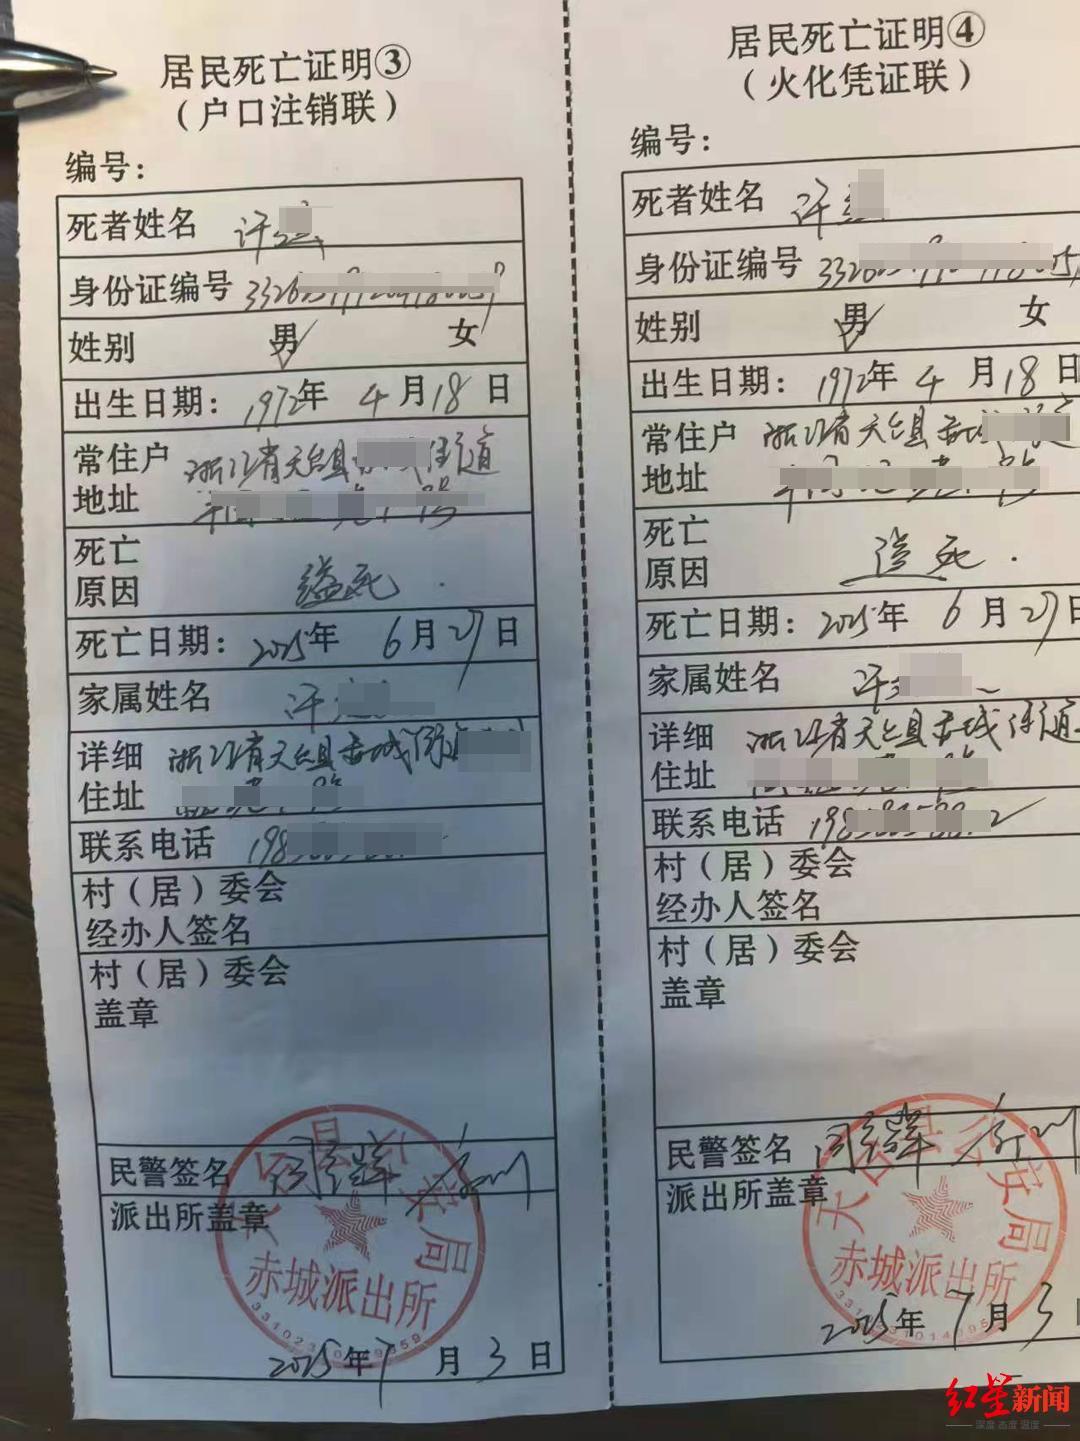 居民死亡证明③
（户口注销联）
编号：
死者姓名 许
身份证编号
姓别 男 女
出生日期：1972年4月18日
常住户 浙江省天台县 街道
地址
死亡
原因 缢死
死亡日期：2025年6月27日
家属姓名 许
详细 浙江省天台县赤城街道
住址
联系电话
村（居）委会
经办人签名
村（居）委会
盖章
民警签名
派出所盖章
天台县公安局
赤城派出所
2025年7月3日
居民死亡证明④
（火化凭证联）
编号：
死者姓名 许
身份证编号
姓别 男 女
出生日期：1972年4月18日
常住户 浙江省天台县赤
地址
死亡
原因 缢死
死亡日期：2025年6月27日
家属姓名 许
详细 浙江省天台县赤城街道
住址
联系电话
村（居）委会
经办人签名
村（居）委会
盖章
民警签名
派出所盖章
天台县公安局
赤城派出所
2025年7月3日
红星新闻
深度 态度 温度